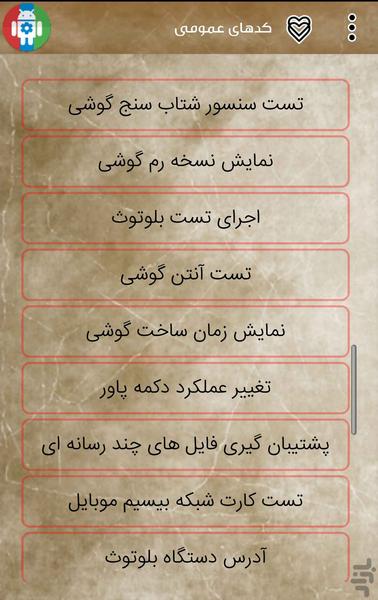 کدهای عمومی
تست سنسور شتاب سنج گوشی
نمایش نسخه رم گوشی
اجرای تست بلوتوث
تست آنتن گوشی
نمایش زمان ساخت گوشی
تغییر عملکرد دکمه پاور
پشتیبان گیری فایل های چند رسانه ای
تست کارت شبکه بیسیم موبایل
آدرس دستگاه بلوتوث
بازار